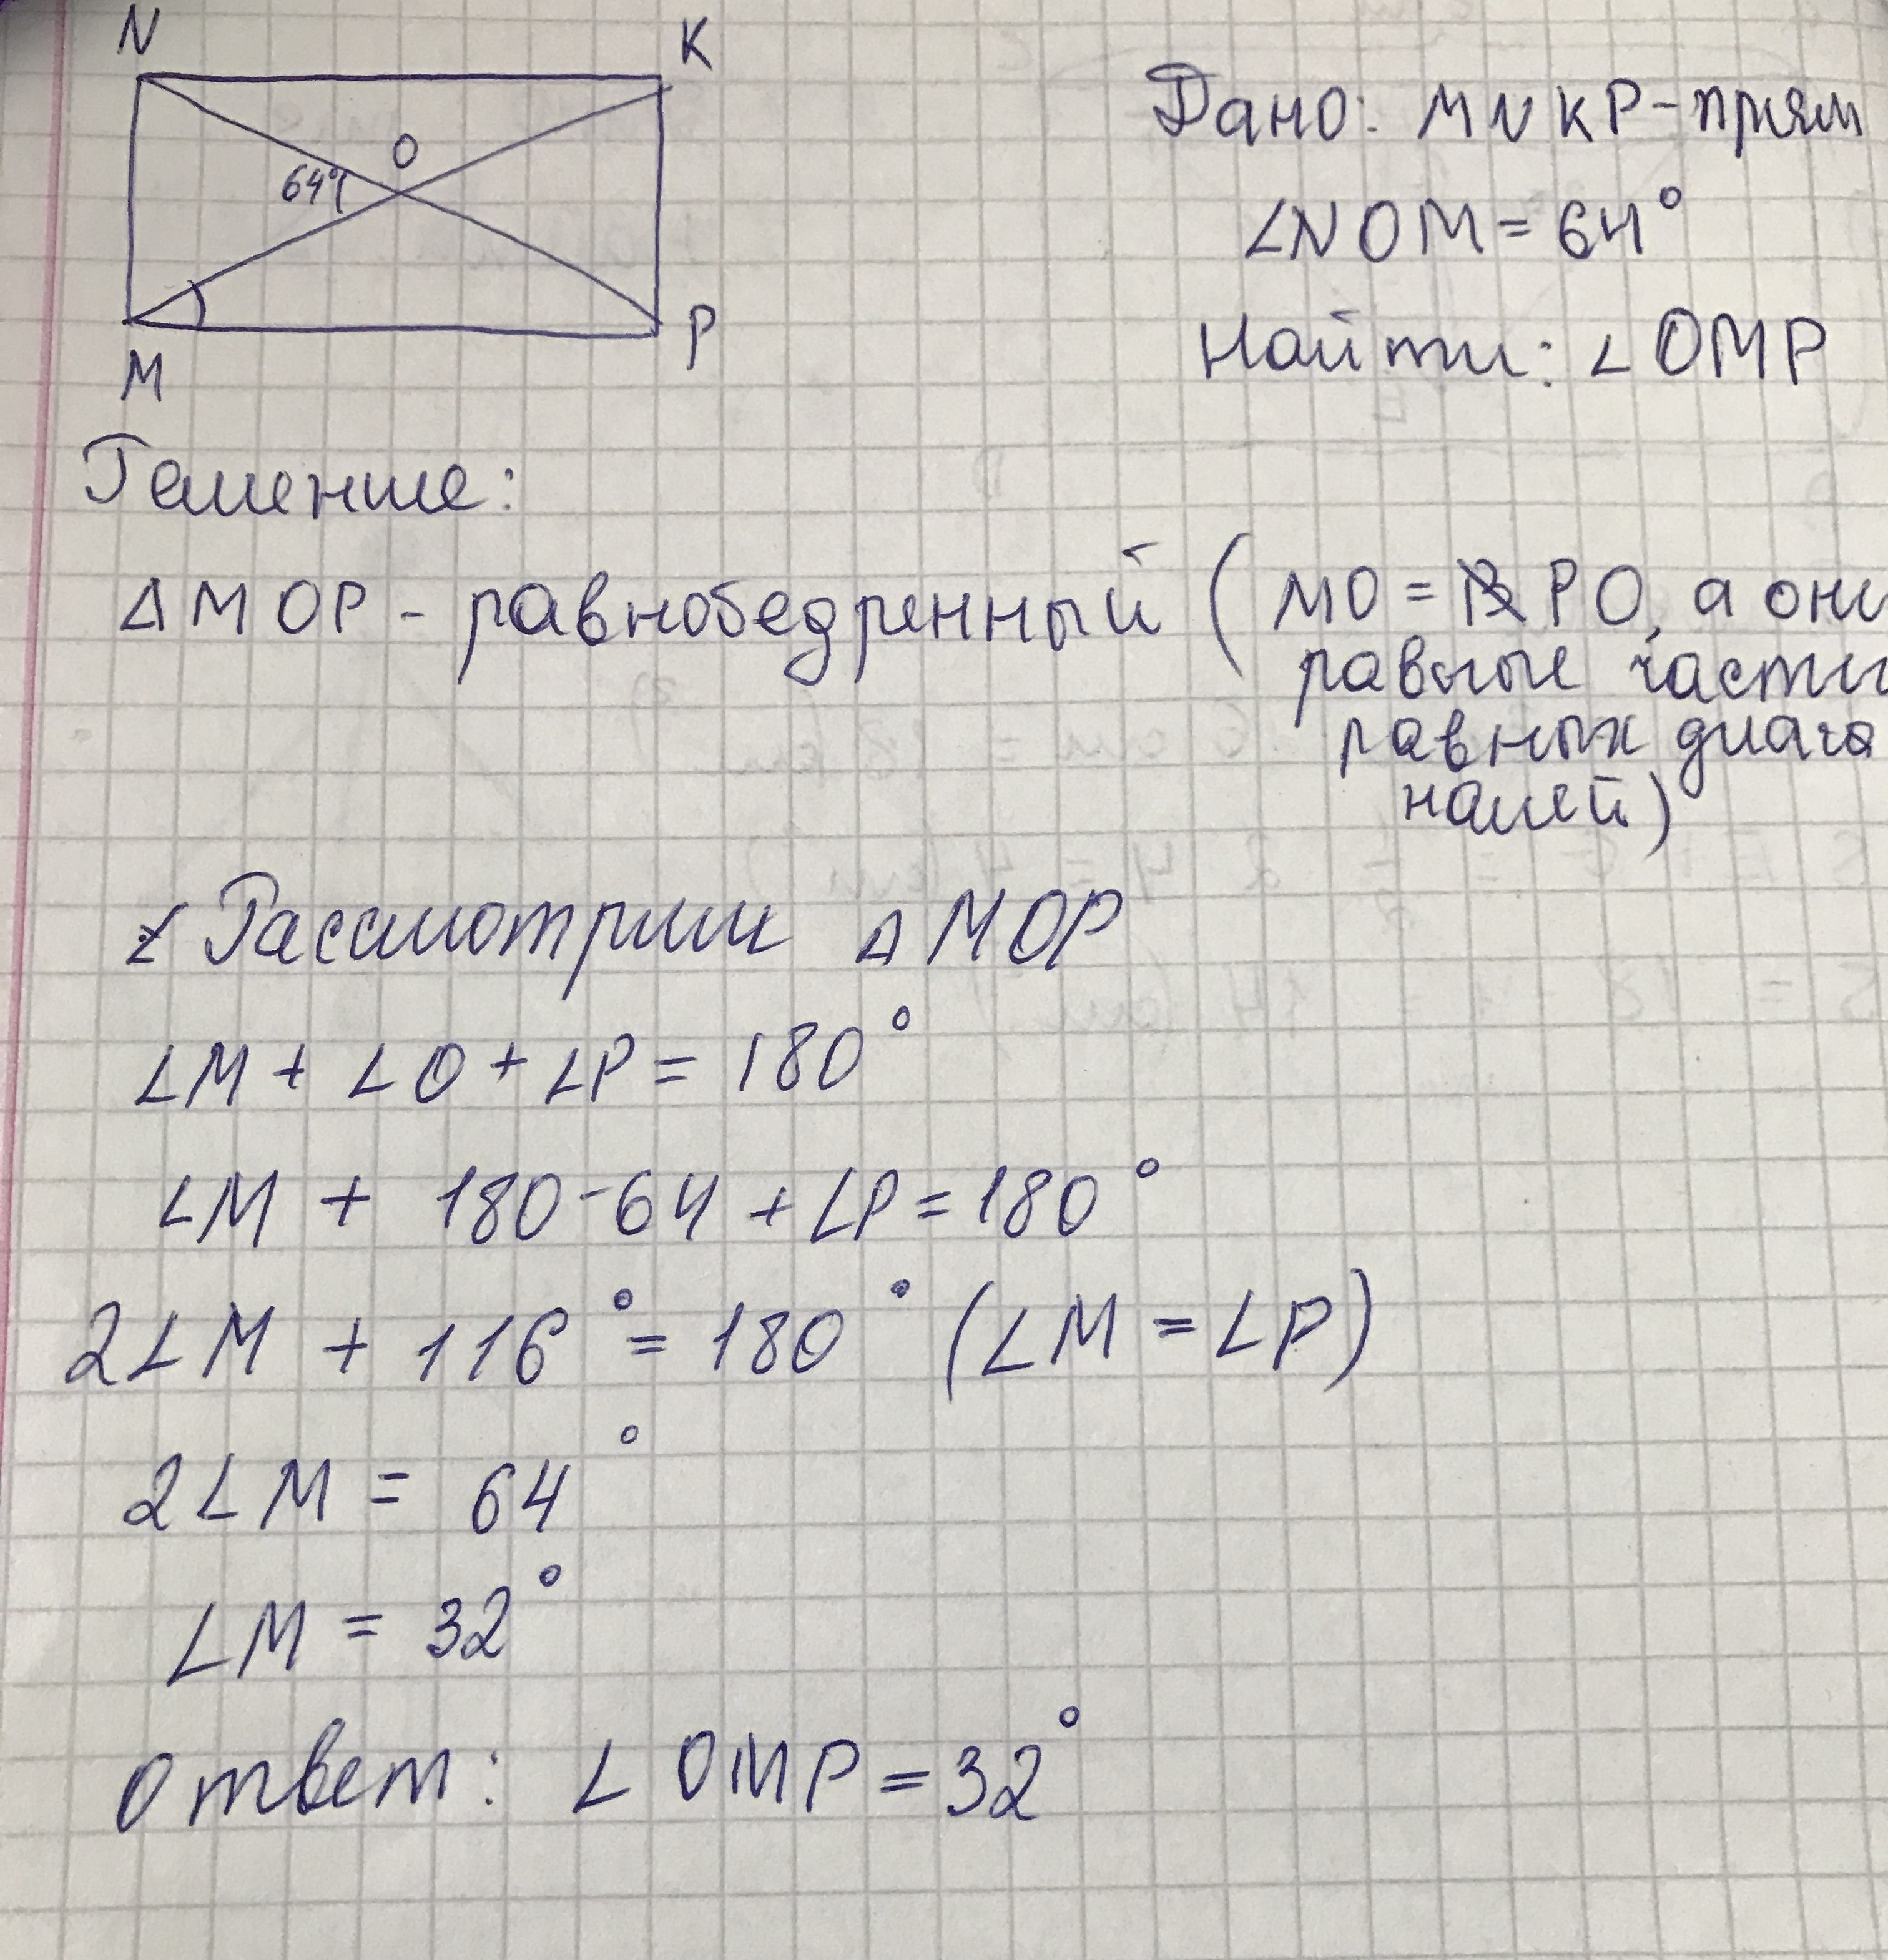 N
K
Дано: MNKP-прям
O
64°
∠NOM = 64°
Найти: ∠OMP
M
P
Решение:
ΔMOP - равнобедренный (MO = PO, а они
равные части
равных диаго
налей)
Рассмотрим ΔMOP
∠M + ∠O + ∠P = 180°
∠M + 180-64 + ∠P = 180°
2∠M + 116° = 180° (∠M = ∠P)
2∠M = 64°
∠M = 32°
Ответ: ∠OMP = 32°